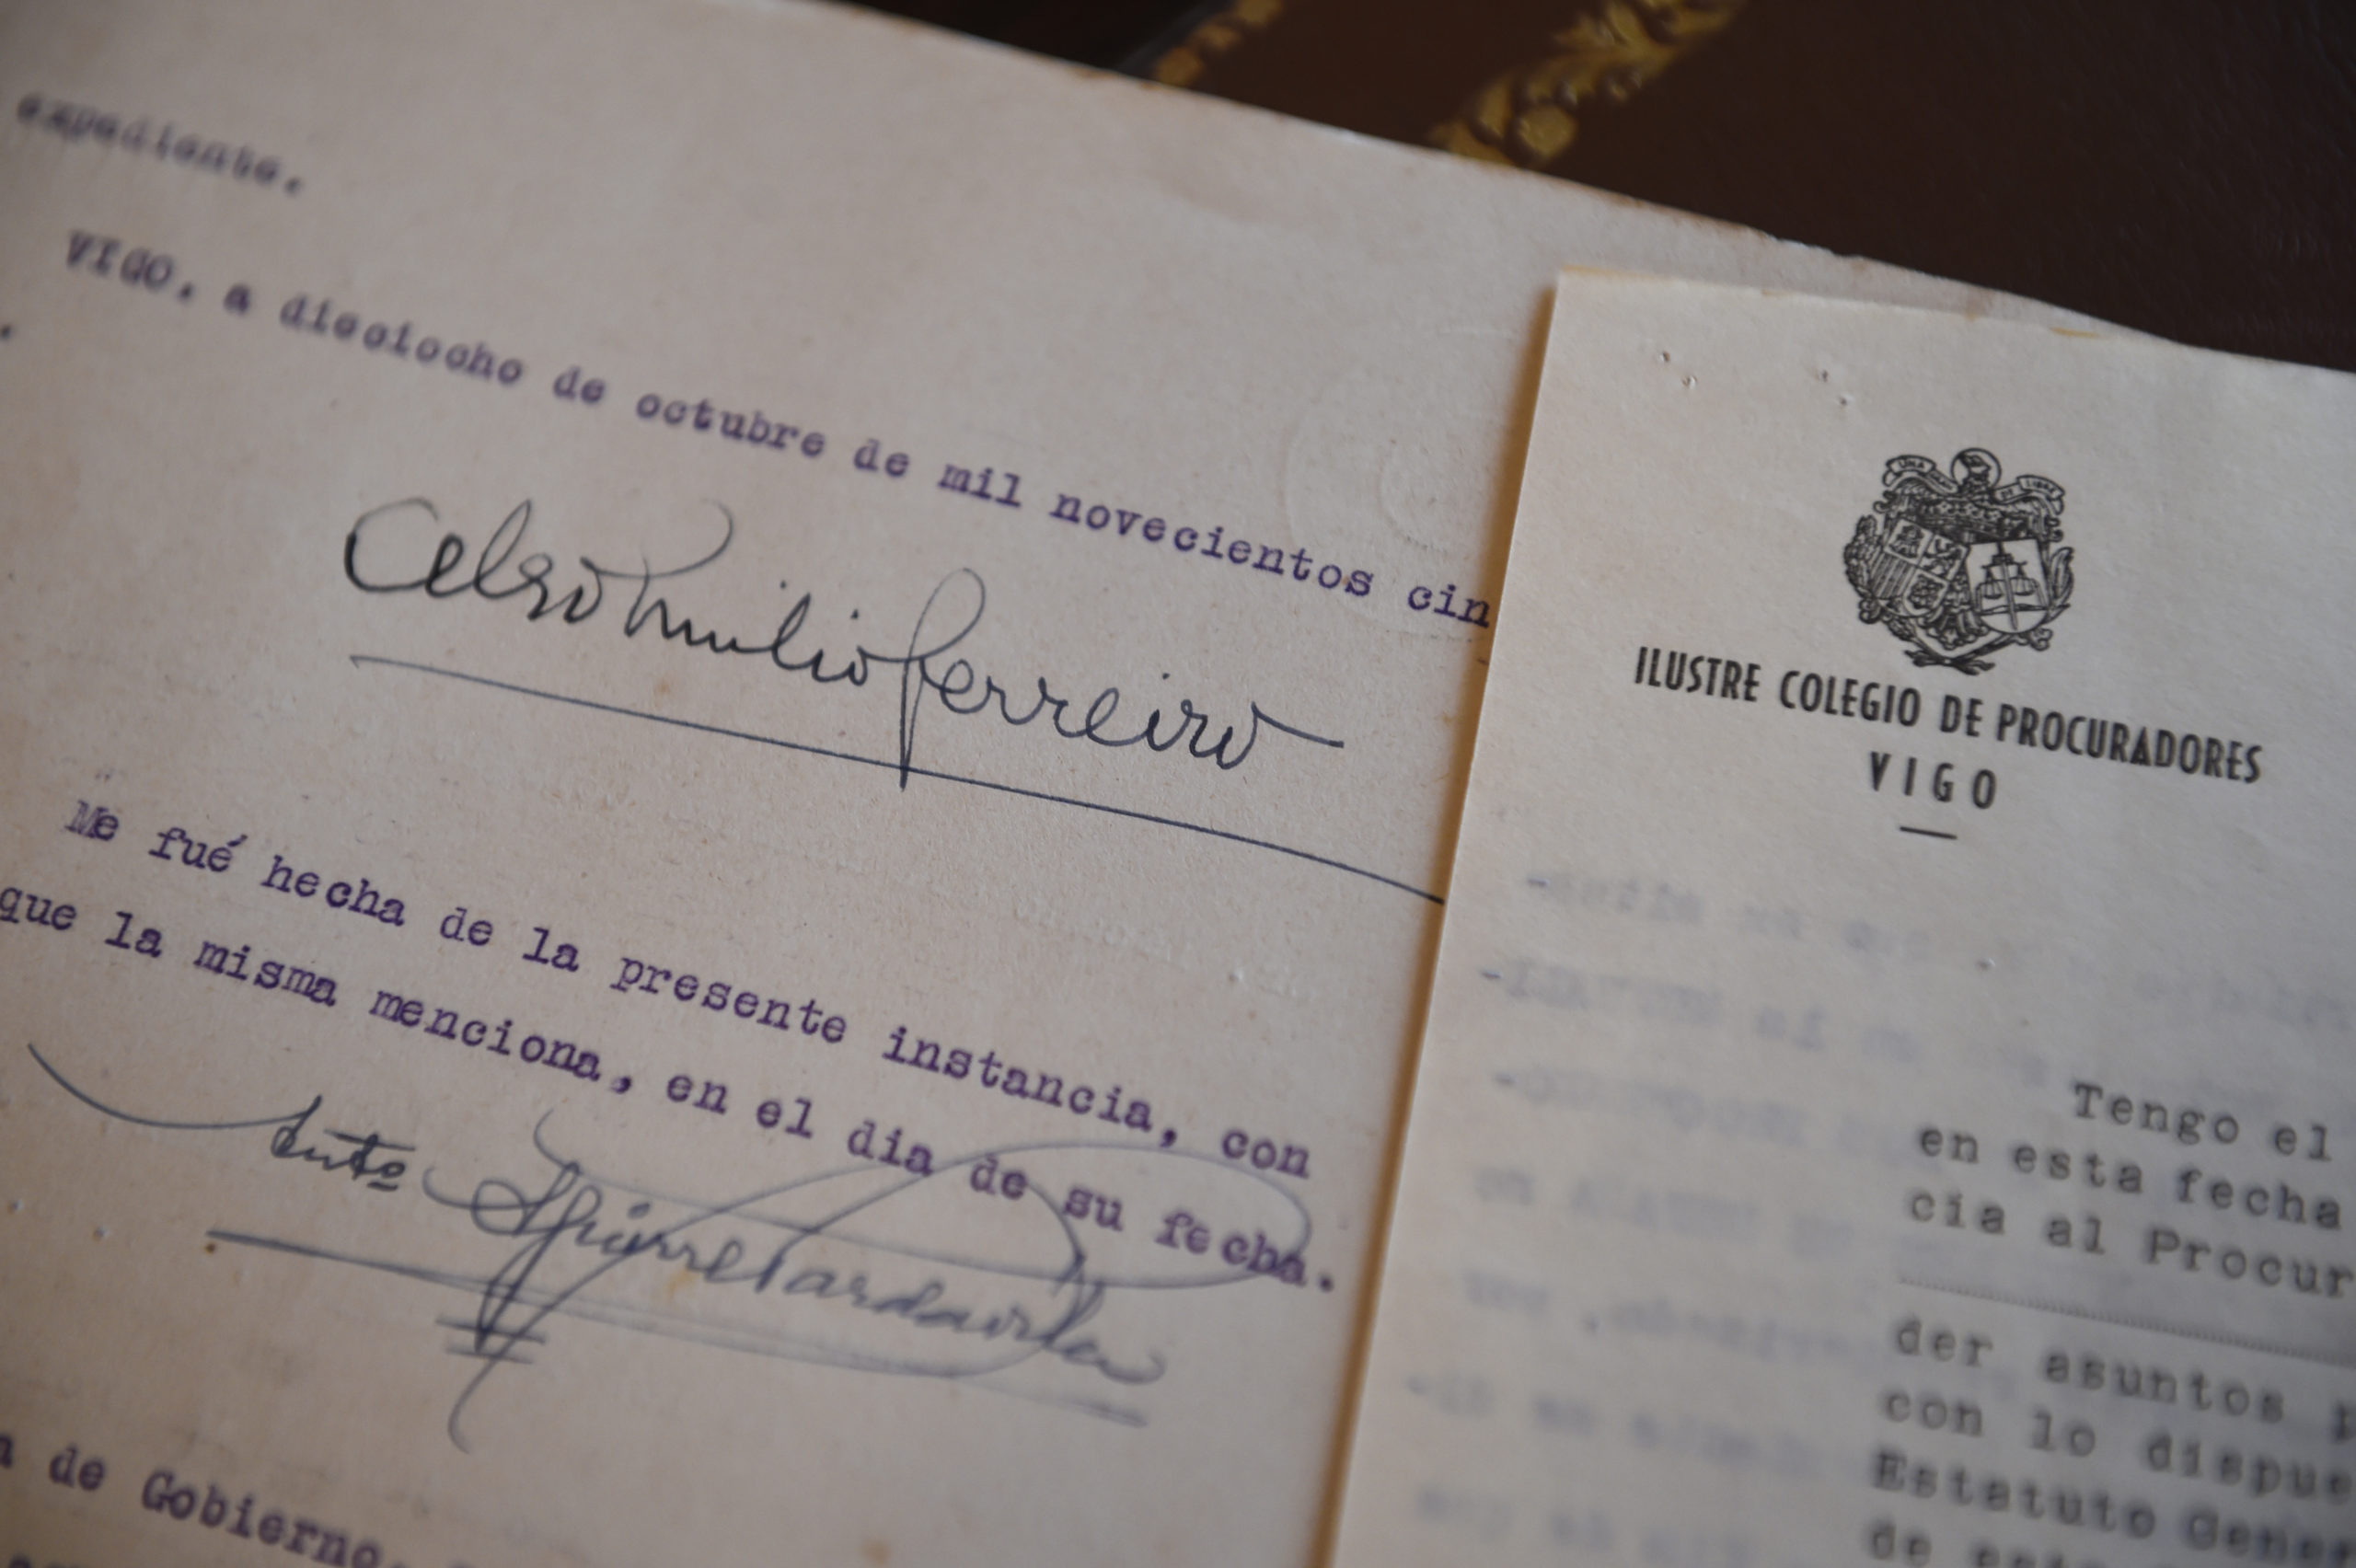 expediente.
VIGO, a dieciocho de octubre de mil novecientos cin
Celso Emilio Ferreiro
Me fué hecha de la presente instancia, con
que la misma menciona, en el dia de su fecha.
de Gobierno.
ILUSTRE COLEGIO DE PROCURADORES
VIGO
Tengo el
en esta fecha
cia al Procur
der asuntos
con lo dispue
Estatuto Gene
de